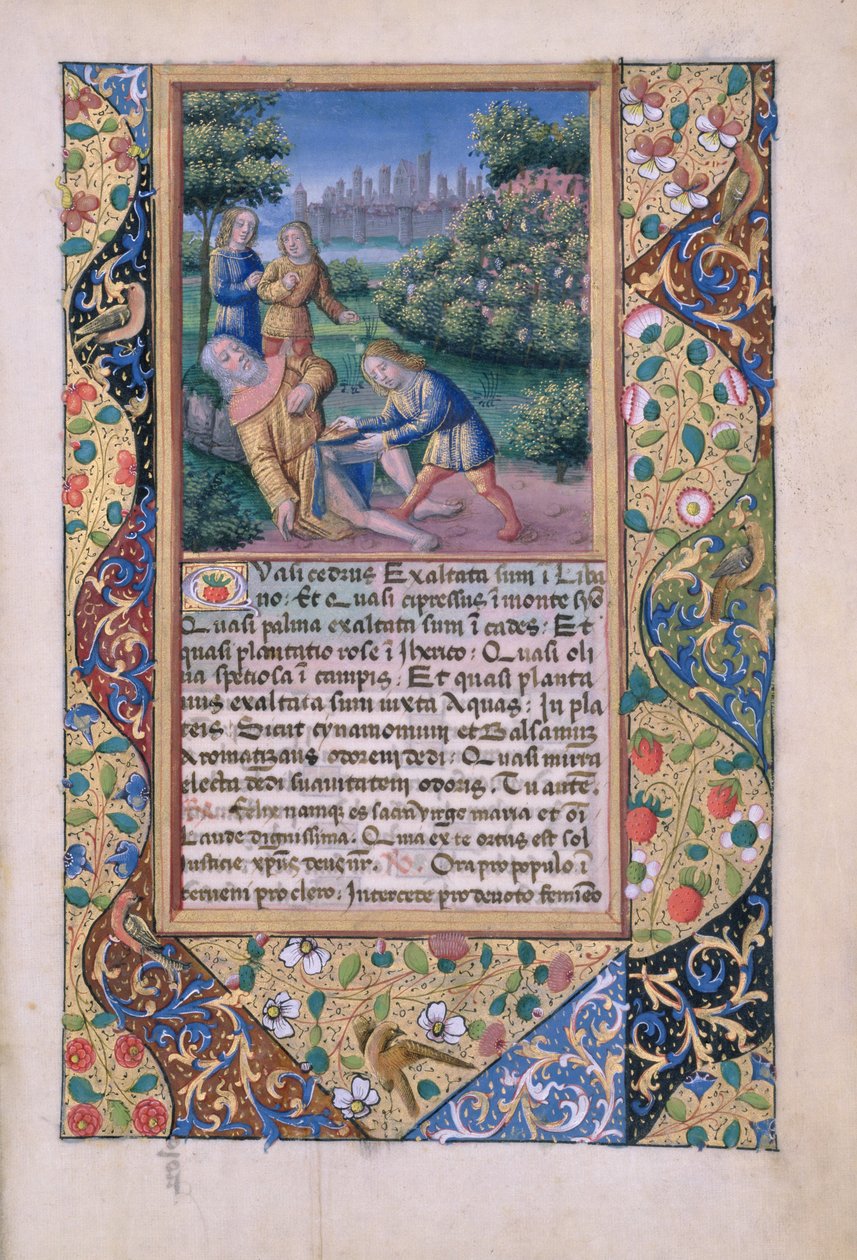 Quasi cedrus Exaltata sum ī Liba
no: Et Quasi cipressus ī monte syō
Quasi palma exaltata sum ī cades: Et
quasi plantatio rose ī Iherico: Quasi oli
ua speciosa ī campis: Et quasi planta
nus exaltata sum iuxta Aquas: In pla
teis Sicut cynamomum et Balsamuz
Aromatizans odorem dedi: Quasi mirra
electa dedi suauitatem odoris. Tu autē.
Felix namque es sacra virgo maria et oī
Laude dignissima. Quia ex te ortus est sol
iusticie xp̄us deus nr̄.
Ora pro populo ī
terueni pro clero: Intercede pro deuoto femineo